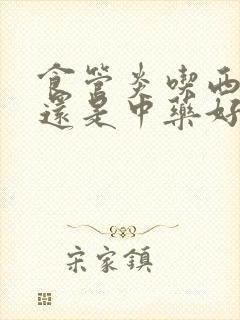 食管炎喫西
還是中藥好
宋家鎮